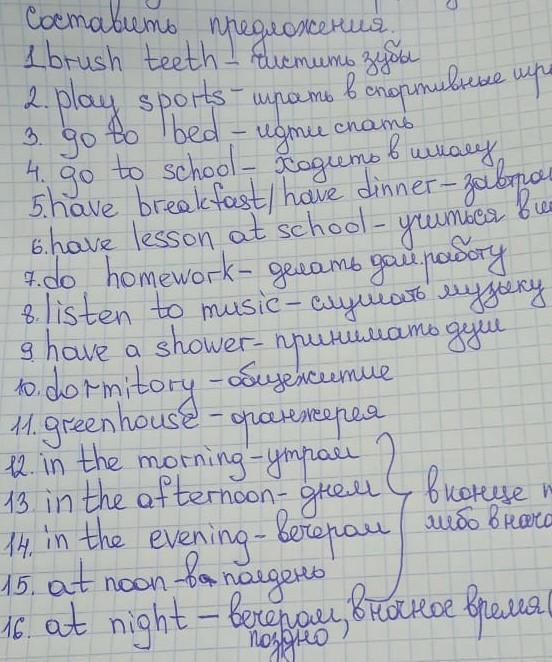 Составить предложения.
1. brush teeth – чистить зубы
2. play sports – играть в спортивные
3. go to bed – идти спать
4. go to school – ходить в школу
5. have breakfast/have dinner –
6. have lesson at school – учиться в
7. do homework – делать дом. работу
8. listen to music – слушать музыку
9. have a shower – принимать душ
10. dormitory – общежитие
11. greenhouse – оранжерея
12. in the morning – утром
13. in the afternoon – днем
14. in the evening – вечером
в конце
либо в
15. at noon – в полдень
16. at night – вечером, в ночное время
поздно